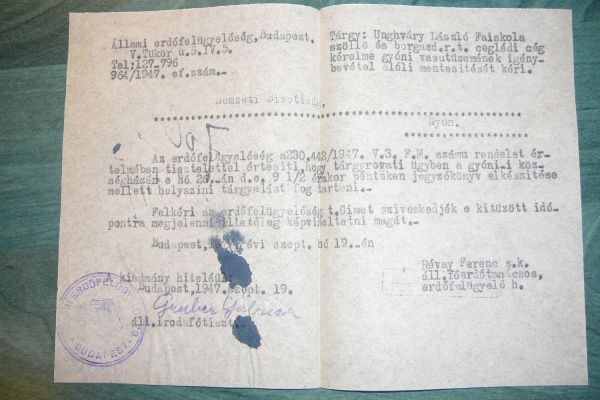 Állami erdőfelügyelőség, Budapest.
V. Tükör u. 5. IV. 5.
Tel: 127-796
964/1947. ef. szám.-
Tárgy: Unghváry László Faiskola
szöllő és borgazd. r.t. ceglédi cég
kérelme gyóni vasutüzemének igény-
bevétel alóli mentesitését kéri.
Nemzeti Bizottság,
Gyón.
Az erdőfelügyelőség a 230.442/1947. V.3. F.M. számu rendelet ér-
telmében tisztelettel értesiti, hogy tárgyrovati ügyben a gyóni köz-
ségházán e hó -án d.e. 9 1/2 órakor pénteken jegyzőkönyv elkészitése
mellett helyszini tárgyalást fog tartani.-
Felkéri az erdőfelügyelőség t. Cimet sziveskedjék e kitüzött idő-
pontra megjelenni illetőleg képviseltetni magát.-
Budapest, évi szept. hó 19.-én
Révay Ferenc s.k.
áll. főerdőtanácsos,
erdőfelügyelő h.
A kiadmány hiteléül:
Budapest, 1947. szept. 19.
Gruber
áll. irodafőtiszt.
ERDŐFELÜGY
BUDAPEST